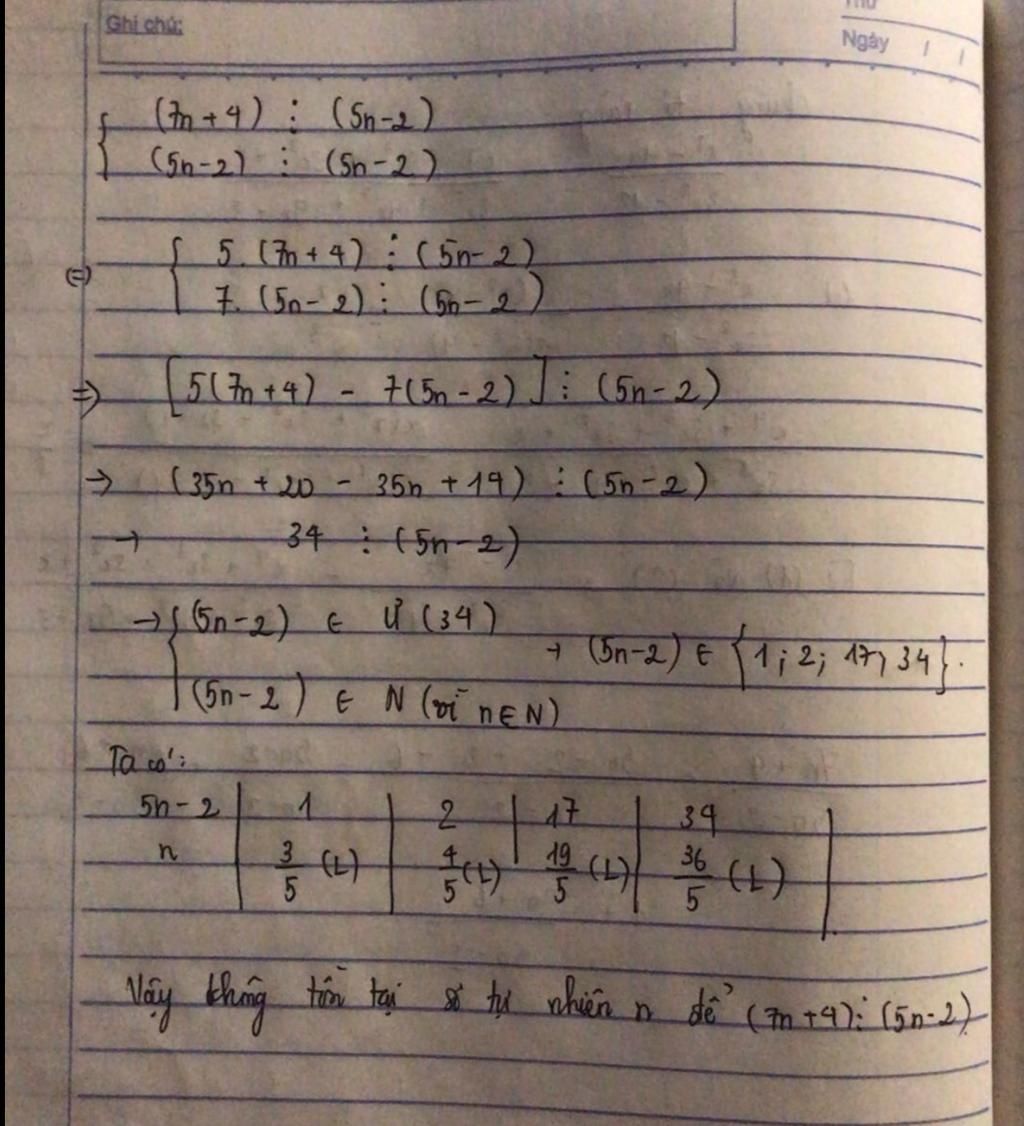 Ghi chú:
Thứ
Ngày / /
{ (7n+4) ⋮ (5n-2)
(5n-2) ⋮ (5n-2)
(=) { 5. (7n+4) ⋮ (5n-2)
7. (5n-2) ⋮ (5n-2)
=> [5(7n+4) - 7(5n-2)] ⋮ (5n-2)
→ (35n + 20 - 35n + 14) ⋮ (5n-2)
→ 34 ⋮ (5n-2)
→ { (5n-2) ∈ Ư (34)
→ (5n-2) ∈ {1; 2; 17; 34}.
(5n-2) ∈ N (vì n∈N)
Ta có:
5n-2 | 1 | 2 | 17 | 34 |
n | 3/5 (L) | 4/5 (L) | 19/5 (L) | 36/5 (L) |
Vậy không tồn tại số tự nhiên n để (7n+4) ⋮ (5n-2).